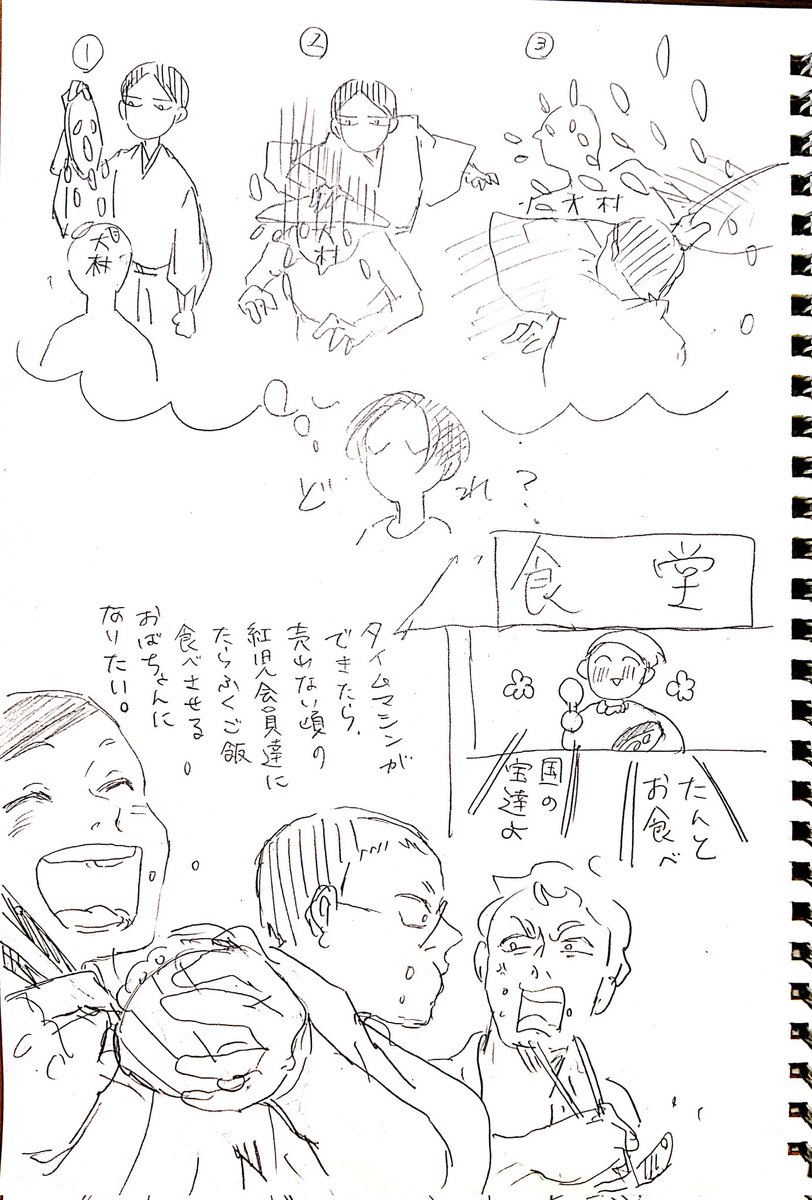 ①
大村
②
大村
③
大村
どれ？
食堂
タイムマシンが
できたら、
売れない頃の
紅児会員達に
たらふくご飯
食べさせる
おばちゃんに
なりたい。
たんと
お食べ
国の
宝達よ